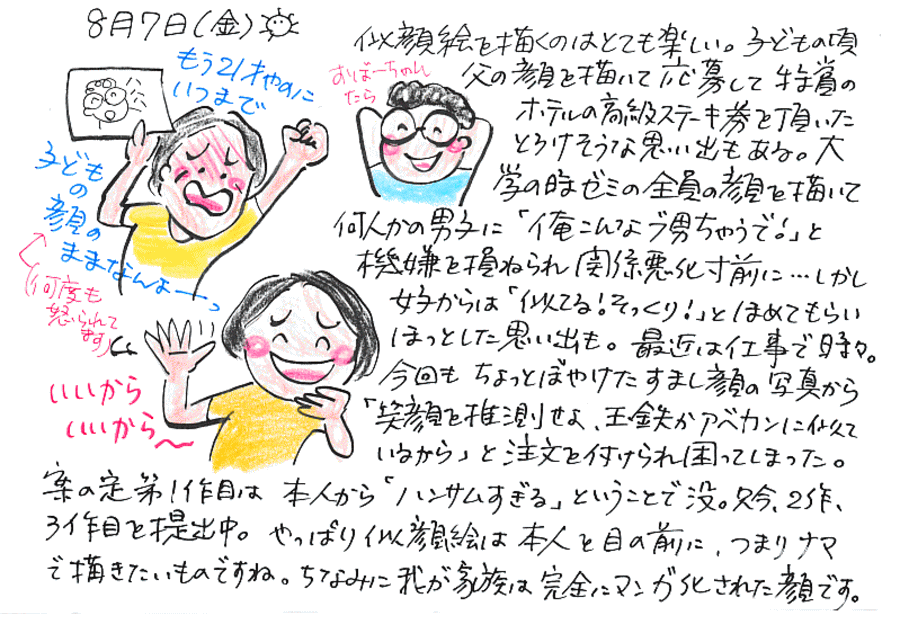 8月7日(金)
もう21才やのに
いつまで
子どもの顔の
ままなんよーっ
(何度も
怒られて
ます)
おばーちゃん
たら
いいから
いいから〜
似顔絵を描くのはとても楽しい。子どもの頃
父の顔を描いて応募して特賞の
ホテルの高級ステーキ券を頂いた
とろけそうな思い出もある。大
学の時ゼミの全員の顔を描いて
何人かの男子に「俺こんなブ男ちゃうで!」と
機嫌を損ねられ関係悪化寸前に…しかし
女子からは「似てる!そっくり!」とほめてもらい
ほっとした思い出も。最近は仕事で時々。
今回もちょっとぼやけたすまし顔の写真から
「笑顔を推測せよ、玉鉄かアベカンに似て
いるから」と注文を付けられ困ってしまった。
案の定第1作目は本人から「ハンサムすぎる」ということで没。只今、2作、
3作目を提出中。やっぱり似顔絵は本人と目の前に、つまりナマ
で描きたいものですね。ちなみに我が家族は完全にマンガ化された顔です。